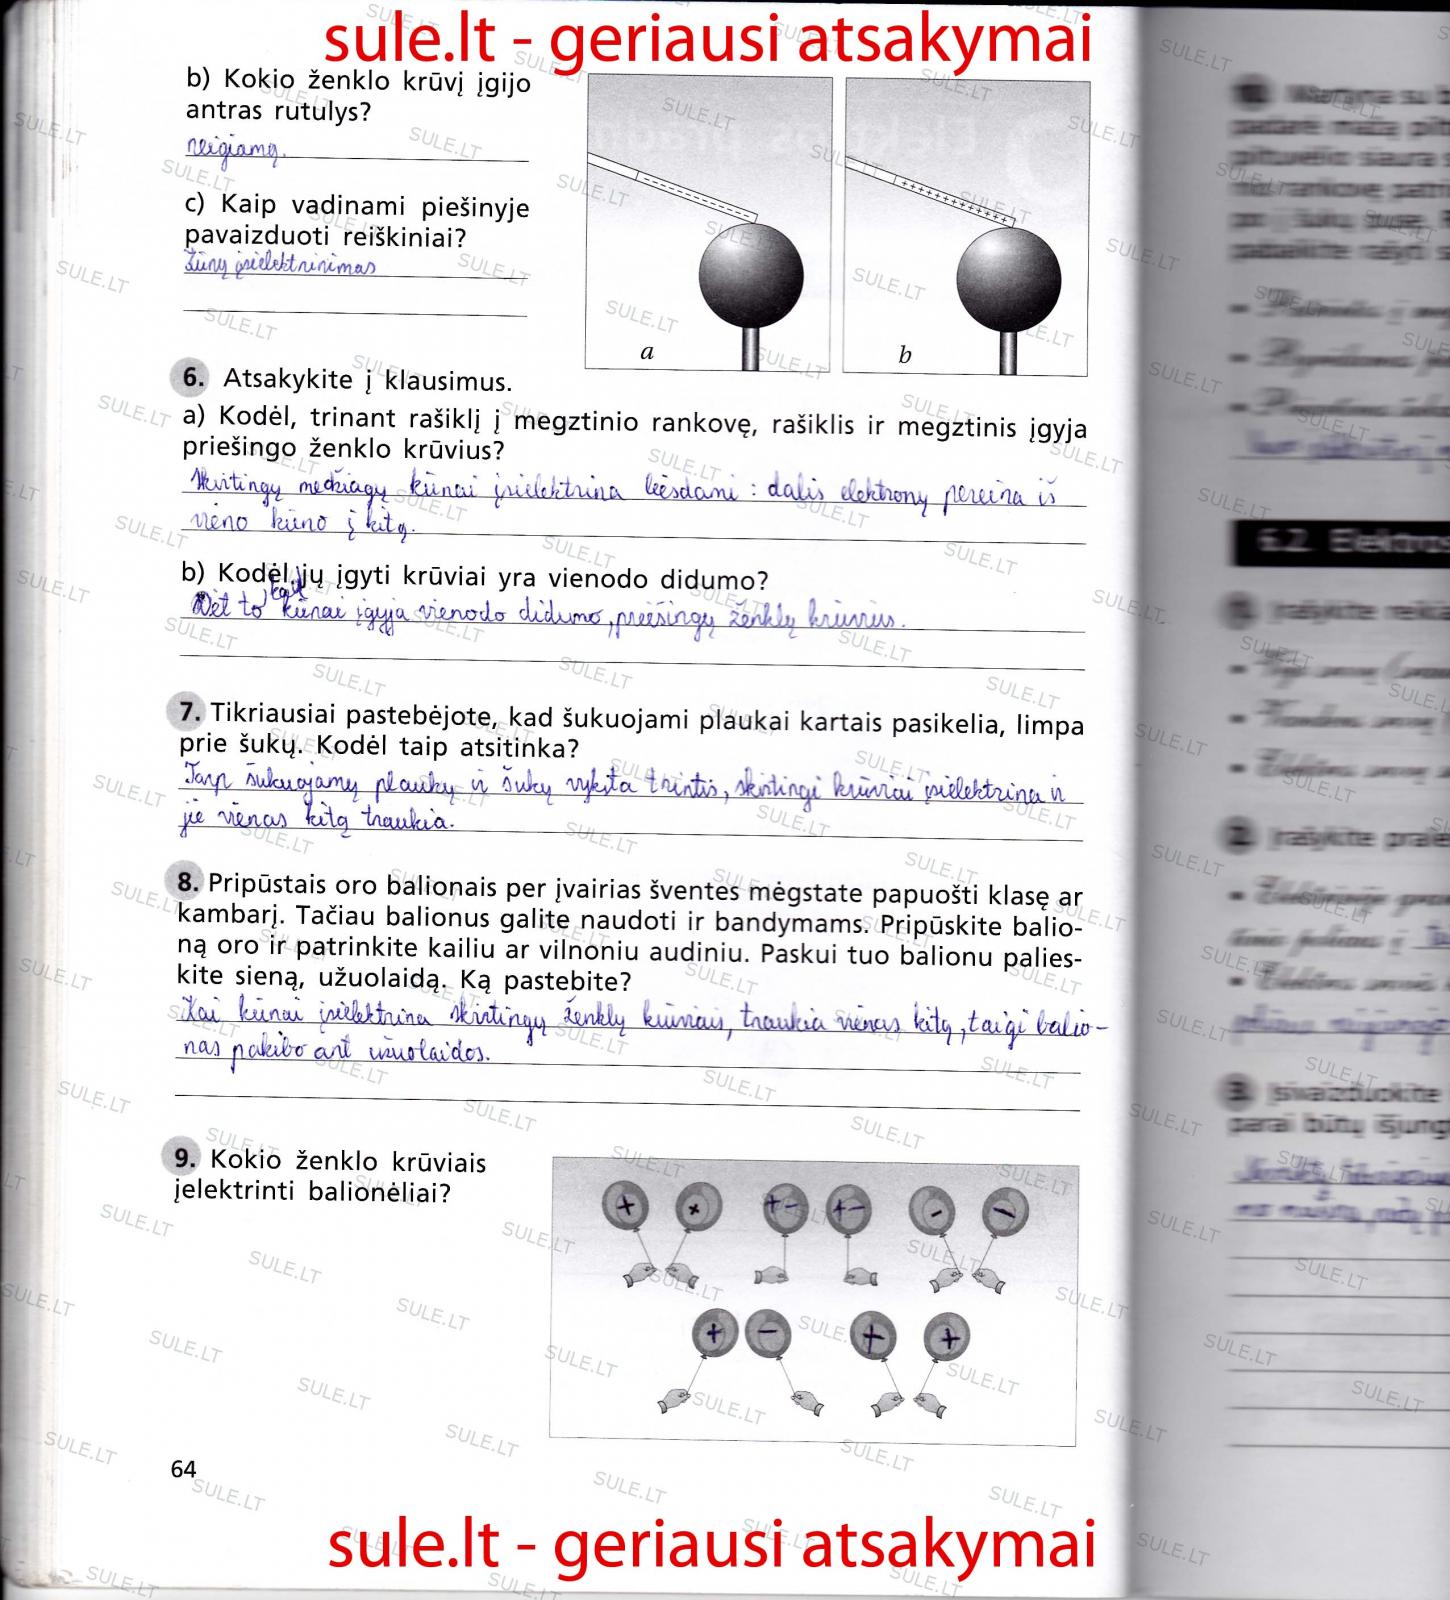 sule.lt - geriausi atsakymai
b) Kokio ženklo krūvį įgijo
antras rutulys?
neigiamą.
c) Kaip vadinami piešinyje
pavaizduoti reiškiniai?
Kūnų įsielektrinimas
a
b
6. Atsakykite į klausimus.
a) Kodėl, trinant rašiklį į megztinio rankovę, rašiklis ir megztinis įgyja
priešingo ženklo krūvius?
Skirtingų medžiagų kūnai įsielektrina liesdami : dalis elektronų pereina iš
vieno kūno į kitą.
b) Kodėl jų įgyti krūviai yra vienodo didumo?
Dėl to kūnai įgyja vienodo didumo, priešingų ženklų krūvius.
7. Tikriausiai pastebėjote, kad šukuojami plaukai kartais pasikelia, limpa
prie šukų. Kodėl taip atsitinka?
Tarp šukuojamų plaukų ir šukų vyksta trintis, skirtingi krūviai įsielektrina ir
jie vienas kitą traukia.
8. Pripūstais oro balionais per įvairias šventes mėgstate papuošti klasę ar
kambarį. Tačiau balionus galite naudoti ir bandymams. Pripūskite balio-
ną oro ir patrinkite kailiu ar vilnoniu audiniu. Paskui tuo balionu palies-
kite sieną, užuolaidą. Ką pastebite?
Kai kūnai įsielektrina skirtingų ženklų krūviais, traukia vienas kitą, taigi balio-
nas pakibo ant užuolaidos.
9. Kokio ženklo krūviais
įelektrinti balionėliai?
+ + + - + - - -
+ - + +
64
sule.lt - geriausi atsakymai
6.2. Elektros
1. Įrašykite
2. Įrašykite
3. Įsivaizduokite
parai būtų išjung
SULE.LT